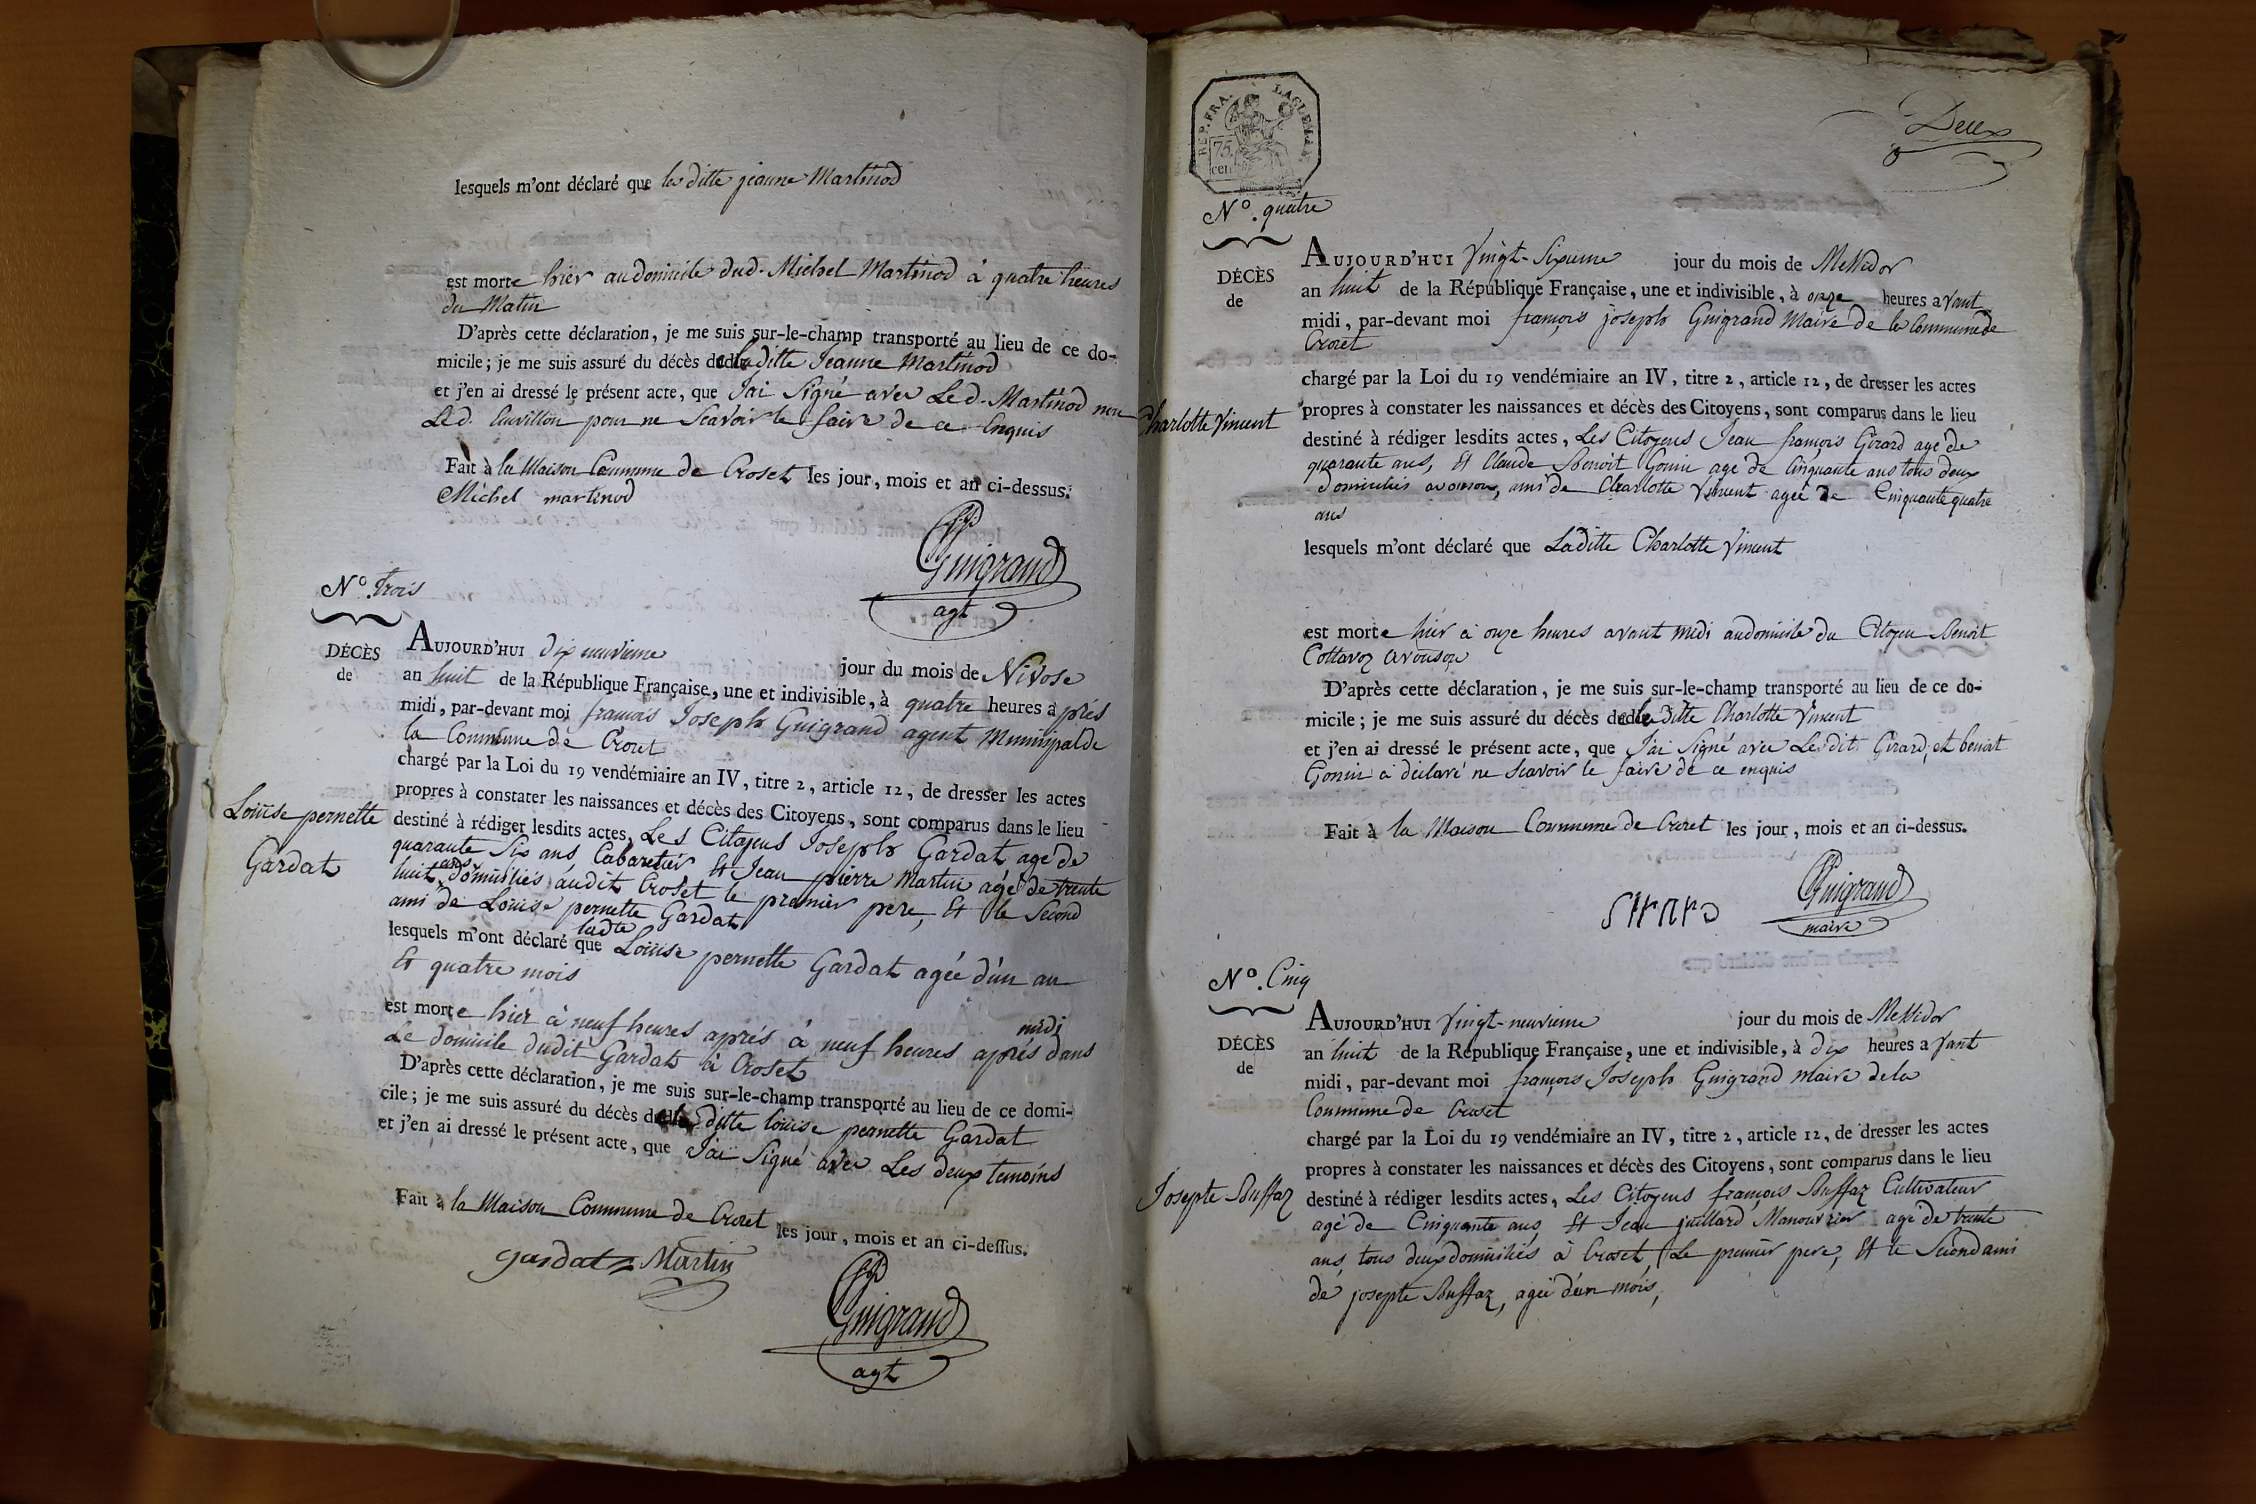 lesquels m'ont déclaré que la ditte jeanne Martinod
est morte hier au domicile dud. Michel Martinod à quatre heures
du Matin
D'après cette déclaration, je me suis sur-le-champ transporté au lieu de ce do-
micile; je me suis assuré du décès de la ditte Jeanne Martinod
et j'en ai dressé le présent acte, que J'ai Signé avec Led. Martinod non
Led. pour ne Scavoir le faire de ce Enquis
Fait à la Maison Commune de Croset les jour, mois et an ci-dessus.
Michel martinod
Guigrand
agt
N.º Trois
DÉCÈS
de
Louise pernette
Gardat
AUJOURD'HUI dix neuvieme jour du mois de Nivose
an huit de la République Française, une et indivisible, à quatre heures après
midi, par-devant moi francois Joseph Guigrand agent Municipal de
la Commune de Crozet
chargé par la Loi du 19 vendémiaire an IV, titre 2, article 12, de dresser les actes
propres à constater les naissances et décès des Citoyens, sont comparus dans le lieu
destiné à rédiger lesdits actes, Les Citoyens Joseph Gardat agé de
quarante Six ans, Cabaretier Et Jean pierre Martin agé de trente
huit ans domiciliés audit Croset le premier pere, Et le Second
ami de Louise pernette Gardat
lesquels m'ont déclaré que ladte Louise pernette Gardat agée d'un an
Et quatre mois
est morte hier à neuf heures aprés à neuf heures aprés midi dans
Le domicile dudit Gardat à Croset
D'après cette déclaration, je me suis sur-le-champ transporté au lieu de ce domi-
cile; je me suis assuré du décès de la ditte louise pernette Gardat
et j'en ai dressé le présent acte, que J'ai Signé avec Les deux temoins
Fait à la Maison Commune de Crozet les jour, mois et an ci-dessus.
gardat Martin
Guigrand
agt
REP. FRA.
75
cen
Deux
N.º quatre
DÉCÈS
de
Charlotte Vincent
AUJOURD'HUI Vingt-Sixieme jour du mois de Messidor
an huit de la République Française, une et indivisible, à onze heures avant
midi, par-devant moi françois joseph Guigrand Maire de la Commune de
Crozet
chargé par la Loi du 19 vendémiaire an IV, titre 2, article 12, de dresser les actes
propres à constater les naissances et décès des Citoyens, sont comparus dans le lieu
destiné à rédiger lesdits actes, Les Citoyens Jean françois Girard agé de
quarante ans, Et Claude Benoit Gonin agé de Cinquante ans tous deux
domiciliés avouson, ami de Charlotte Vincent agée de Cinquante quatre
ans
lesquels m'ont déclaré que Laditte Charlotte Vincent
est morte hier à onze heures avant midi au domicile du Citoyen Benoit
Cottavoz avouson
D'après cette déclaration, je me suis sur-le-champ transporté au lieu de ce do-
micile; je me suis assuré du décès de la ditte Charlotte Vincent
et j'en ai dressé le présent acte, que J'ai Signé avec Ledit Girard, et benoit
Gonin a déclaré ne Scavoir le faire de ce enquis
Fait à la Maison Commune de Crozet les jour, mois et an ci-dessus.
Guigrand
maire
N.º Cinq
DÉCÈS
de
Josepte Buffaz
AUJOURD'HUI Vingt-neuvieme jour du mois de Messidor
an huit de la République Française, une et indivisible, à dix heures avant
midi, par-devant moi françois Joseph Guigrand maire de la
Commune de Croset
chargé par la Loi du 19 vendémiaire an IV, titre 2, article 12, de dresser les actes
propres à constater les naissances et décès des Citoyens, sont comparus dans le lieu
destiné à rédiger lesdits actes, Les Citoyens françois Buffaz Cultivateur
agé de Cinquante ans, Et Jean juillard Manouvrier agé de trente
ans, tous deux domiciliés à Croset, Le premier pere, Et le Second ami
de josepte Buffaz, agée d'un mois,